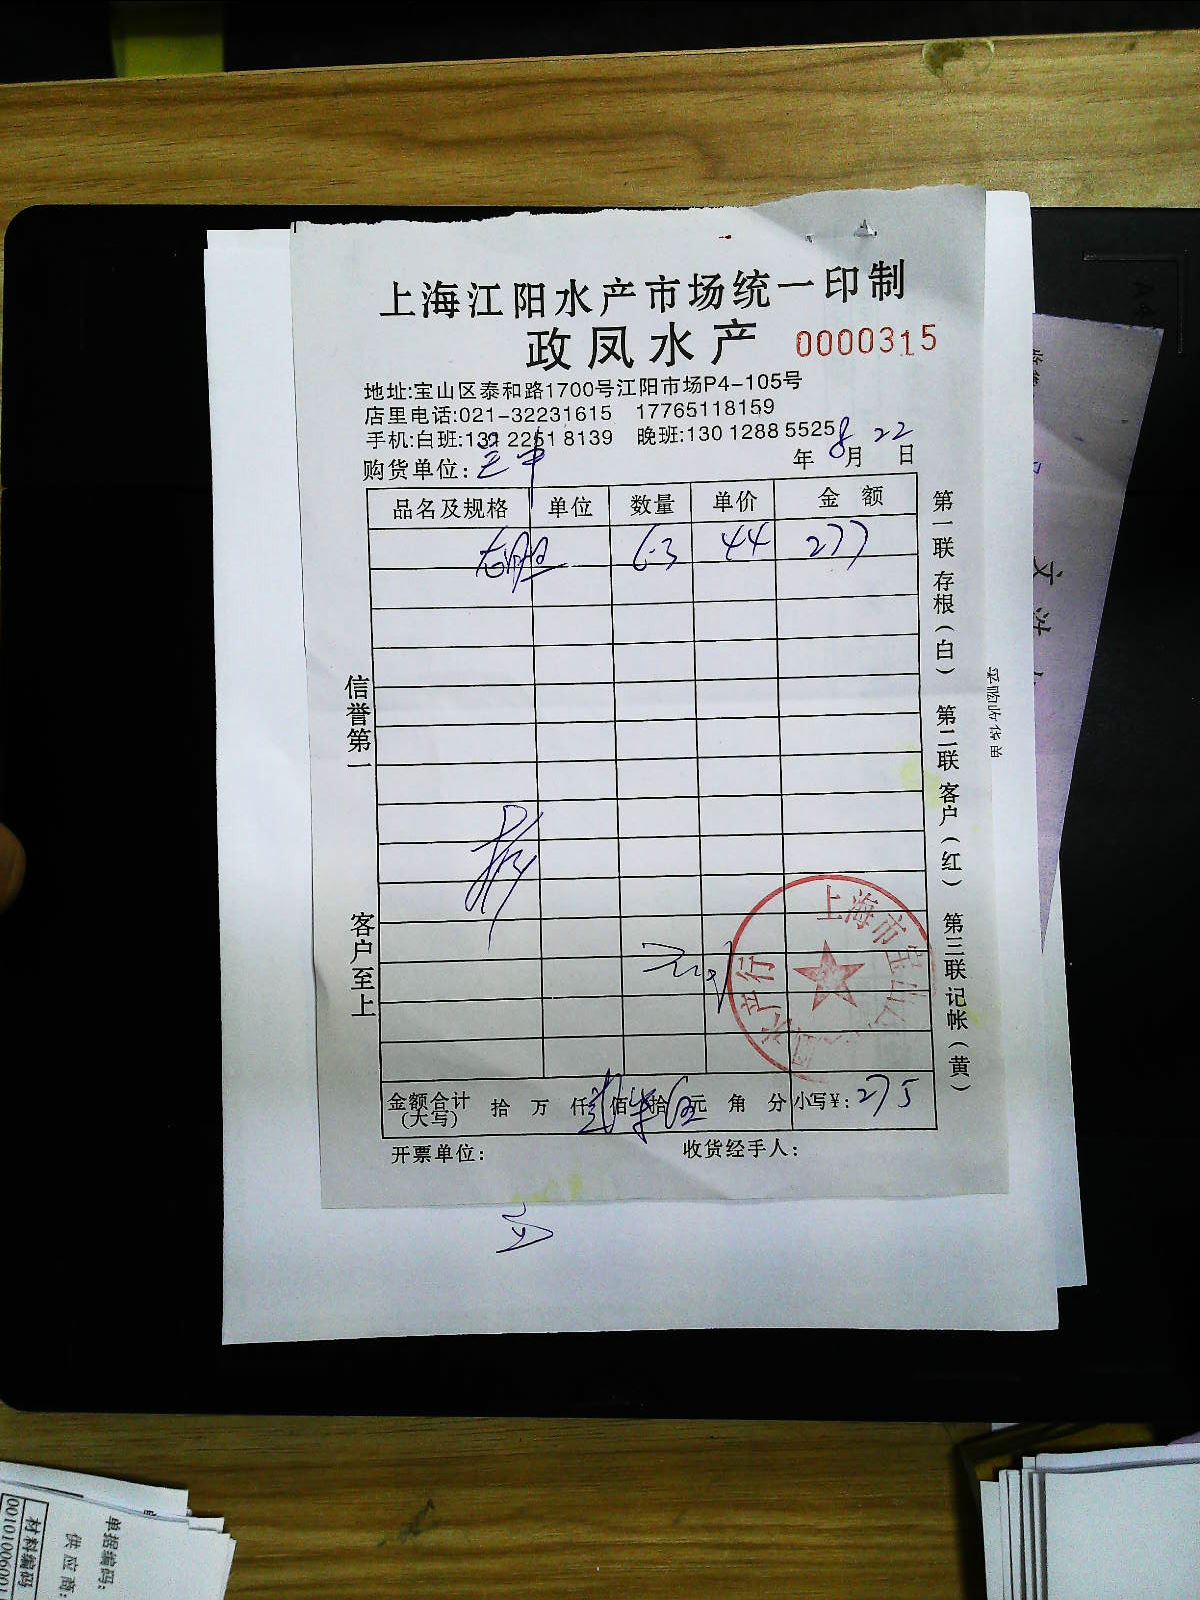 上海江阳水产市场统一印制
政凤水产 0000315
地址:宝山区泰和路1700号江阳市场P4-105号
店里电话:021-32231615 17765118159
手机:白班:131 2251 8139 晚班:130 1288 5525
购货单位: 年 8 月 22 日
品名及规格 单位 数量 单价 金 额
6.3 44 277
信誉第一
客户至上
第一联 存根(白) 第二联 客户(红) 第三联 记帐(黄)
上海市宝山
水产行
金额合计(大写) 拾 万 仟 佰 拾 伍 元 角 分 小写¥: 275
开票单位: 收货经手人:
采购收货单
A4
单据编码:
供应商:
材料编码